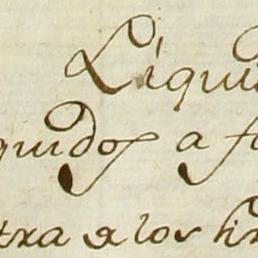 Liqui
quidos a f
tra a los